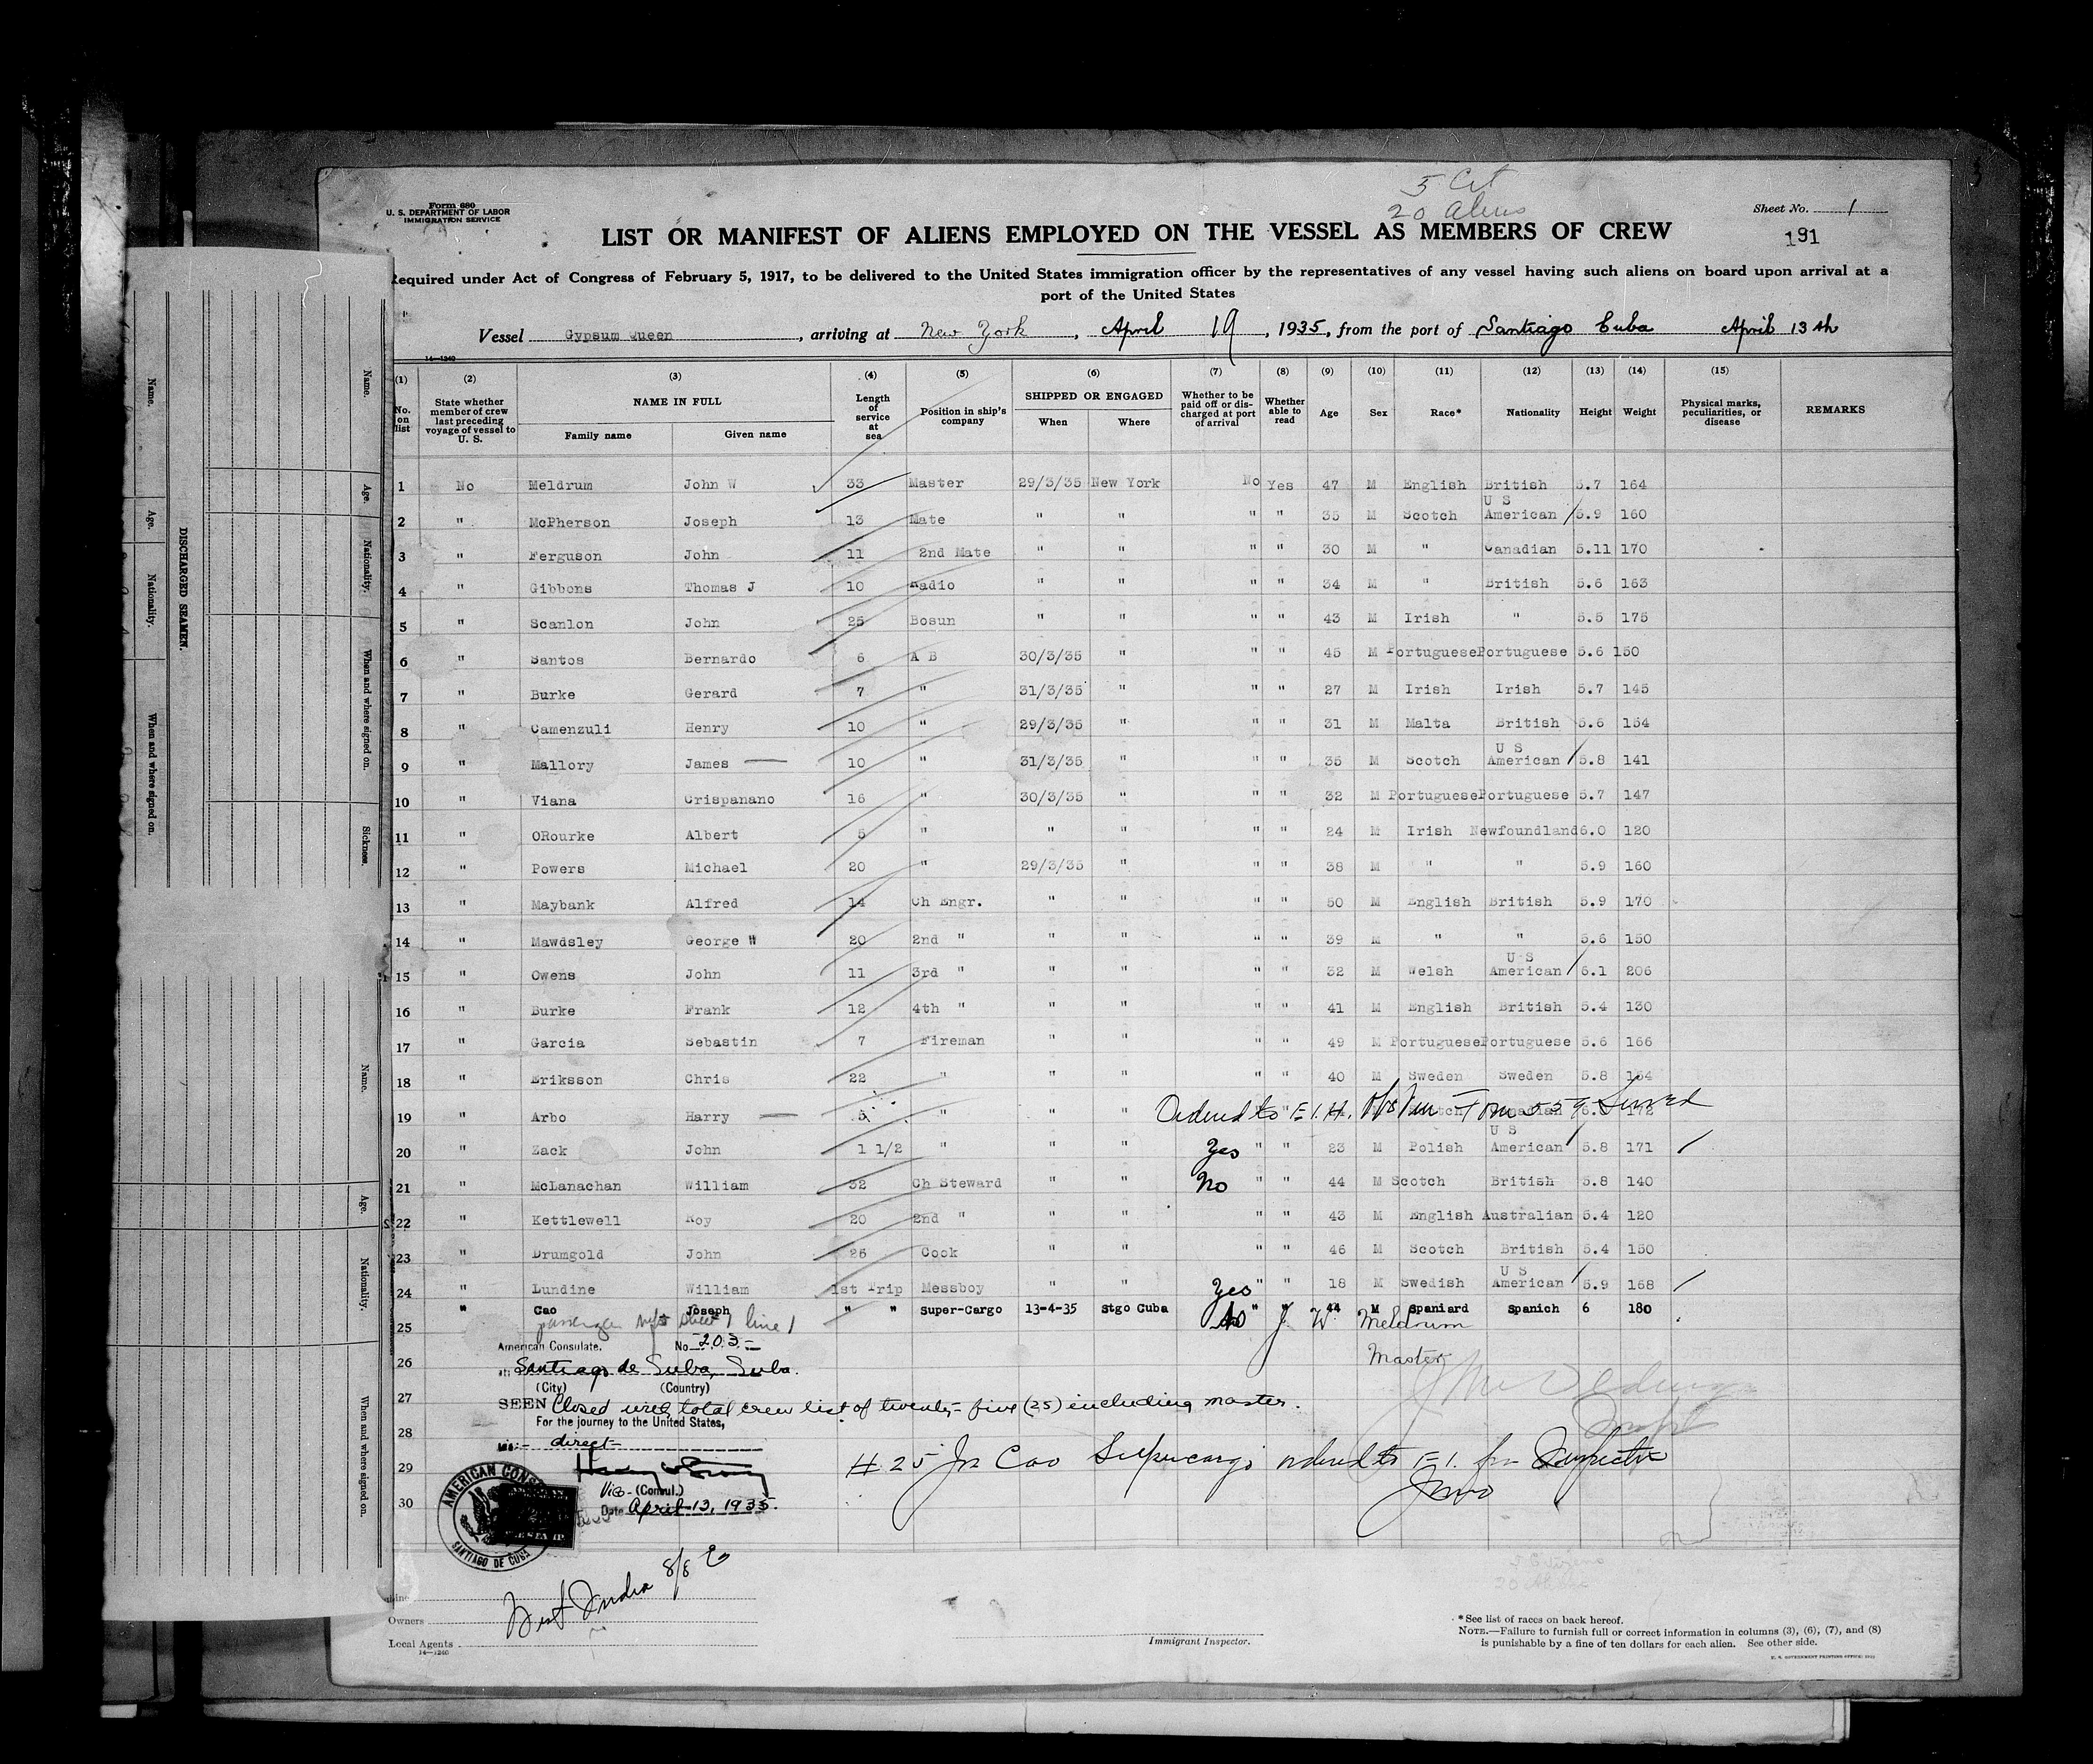 5 Cit
20 Aliens
Form 680
U. S. DEPARTMENT OF LABOR
IMMIGRATION SERVICE
Sheet No. 1
191
LIST OR MANIFEST OF ALIENS EMPLOYED ON THE VESSEL AS MEMBERS OF CREW
Required under Act of Congress of February 5, 1917, to be delivered to the United States immigration officer by the representatives of any vessel having such aliens on board upon arrival at a
port of the United States
Vessel Gypsum Queen, arriving at New York, April 19, 1935, from the port of Santiago Cuba April 13th
14-1240
(1) (2) (3) (4) (5) (6) (7) (8) (9) (10) (11) (12) (13) (14) (15)
No. on list State whether member of crew last preceding voyage of vessel to U. S. NAME IN FULL Family name Given name Length of service at sea Position in ship's company SHIPPED OR ENGAGED When Where Whether to be paid off or discharged at port of arrival Whether able to read Age Sex Race* Nationality Height Weight Physical marks, peculiarities, or disease REMARKS
1 No Meldrum John W 33 Master 29/3/35 New York No Yes 47 M English British 5.7 164
2 " McPherson Joseph 13 Mate " " " " 35 M Scotch U S American 5.9 160
3 " Ferguson John 11 2nd Mate " " " " 30 M " Canadian 5.11 170
4 " Gibbons Thomas J 10 Radio " " " " 34 M " British 5.6 163
5 " Scanlon John 25 Bosun " " " " 43 M Irish " 5.5 175
6 " Santos Bernardo 6 A B 30/3/35 " " " 45 M Portuguese Portuguese 5.6 150
7 " Burke Gerard 7 " 31/3/35 " " " 27 M Irish Irish 5.7 145
8 " Camenzuli Henry 10 " 29/3/35 " " " 31 M Malta British 5.6 154
9 " Mallory James 10 " 31/3/35 " " " 35 M Scotch U S American 5.8 141
10 " Viana Crispanano 16 " 30/3/35 " " " 32 M Portuguese Portuguese 5.7 147
11 " ORourke Albert 5 " " " " " 24 M Irish Newfoundland 6.0 120
12 " Powers Michael 20 " 29/3/35 " " " 38 M " " 5.9 160
13 " Maybank Alfred 14 Ch Engr. " " " " 50 M English British 5.9 170
14 " Mawdsley George W 20 2nd " " " " " 39 M " " 5.6 150
15 " Owens John 11 3rd " " " " " 32 M Welsh U S American 6.1 206
16 " Burke Frank 12 4th " " " " " 41 M English British 5.4 130
17 " Garcia Sebastin 7 Fireman " " " " 49 M Portuguese Portuguese 5.6 166
18 " Eriksson Chris 22 " " " " " 40 M Sweden Sweden 5.8 154
19 " Arbo Harry 5 " " " Ordered to E.I.H. 559 Served
20 " Zack John 1 1/2 " " " Yes " " 23 M Polish U S American 5.8 171
21 " McLanachan William 32 Ch Steward " " No " " 44 M Scotch British 5.8 140
22 " Kettlewell Roy 20 2nd " " " " " 43 M English Australian 5.4 120
23 " Drumgold John 26 Cook " " " " 46 M Scotch British 5.4 150
24 " Lundine William 1st Trip Messboy " " Yes " " 18 M Swedish U S American 5.9 158
25 " Cao Joseph " " Super-Cargo 13-4-35 Stgo Cuba No " " 44 M Spaniard Spanich 6 180
passenger sheet 1 line 1
J. W. Meldrum
Master
American Consulate. No 203
26
at: Santiago de Cuba, Cuba.
(City) (Country)
27
SEEN Closed with total crew list of twenty-five (25) including master.
For the journey to the United States,
28
via:- direct
29
# 25 Cao Supercargo ordered to E.I. for Inspection
Vice- (Consul.)
30
Date April 13, 1935.
AMERICAN CONS
SANTIAGO DE CUBA
5 Citizens
20 Aliens
West India 8/8
Owners
Local Agents
14-1240
Immigrant Inspector.
*See list of races on back hereof.
NOTE.—Failure to furnish full or correct information in columns (3), (6), (7), and (8)
is punishable by a fine of ten dollars for each alien. See other side.
DISCHARGED SEAMEN.
Name. Age. Nationality. When and where signed on.
Name. Age. Nationality. When and where signed on. Sickness.
Name. Age. Nationality. When and where signed on.